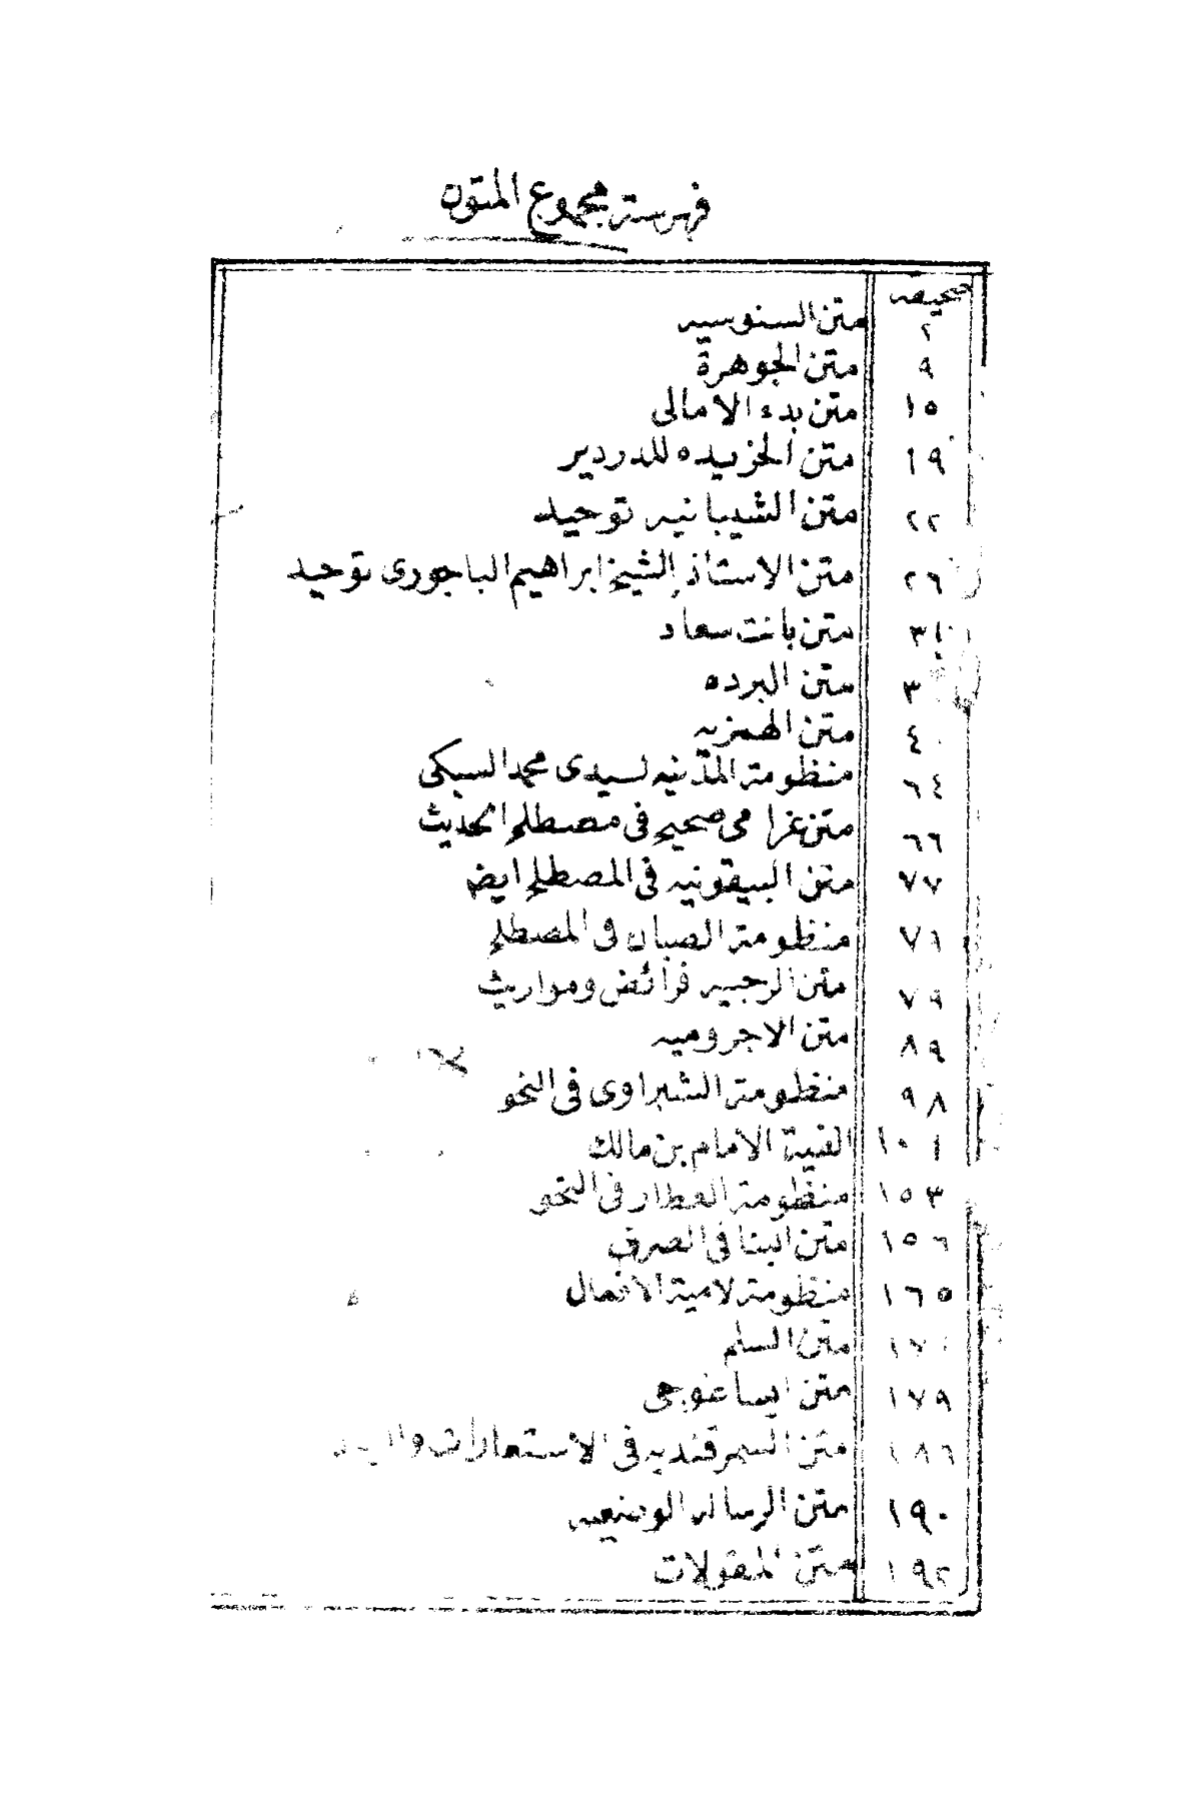 فهرسة مجموع المتون
صحيفه
٢ متن السنوسيه
٩ متن الجوهرة
١٥ متن بدء الامالى
١٩ متن الخريده للدردير
٢٢ متن الشيبانيه توحيد
٢٦ متن الاستاذ الشيخ ابراهيم الباجورى توحيد
متن بانت سعاد
متن البرده
٤٠ متن الهمزيه
٦٤ منظومة المدنيه لسيدى محمد السبكى
٦٦ متن غرامى صحيح فى مصطلح الحديث
٧٧ متن البيقونيه فى المصطلح ايضا
٧١ منظومة الصبان فى المصطلح
٧٩ متن الرحبيه فرائض ومواريث
٨٩ متن الاجروميه
٩٨ منظومة الشبراوى فى النحو
١٠١ الفية الامام بن مالك
١٥٣ منظومة العطار فى النحو
١٥٦ متن البنا فى الصرف
١٦٥ منظومة لامية الافعال
متن السلم
١٧٩ متن ايساغوجى
١٨٦ متن السمرقنديه فى الاستعارات
١٩٠ متن الرساله الوضعيه
١٩٢ متن المقولات